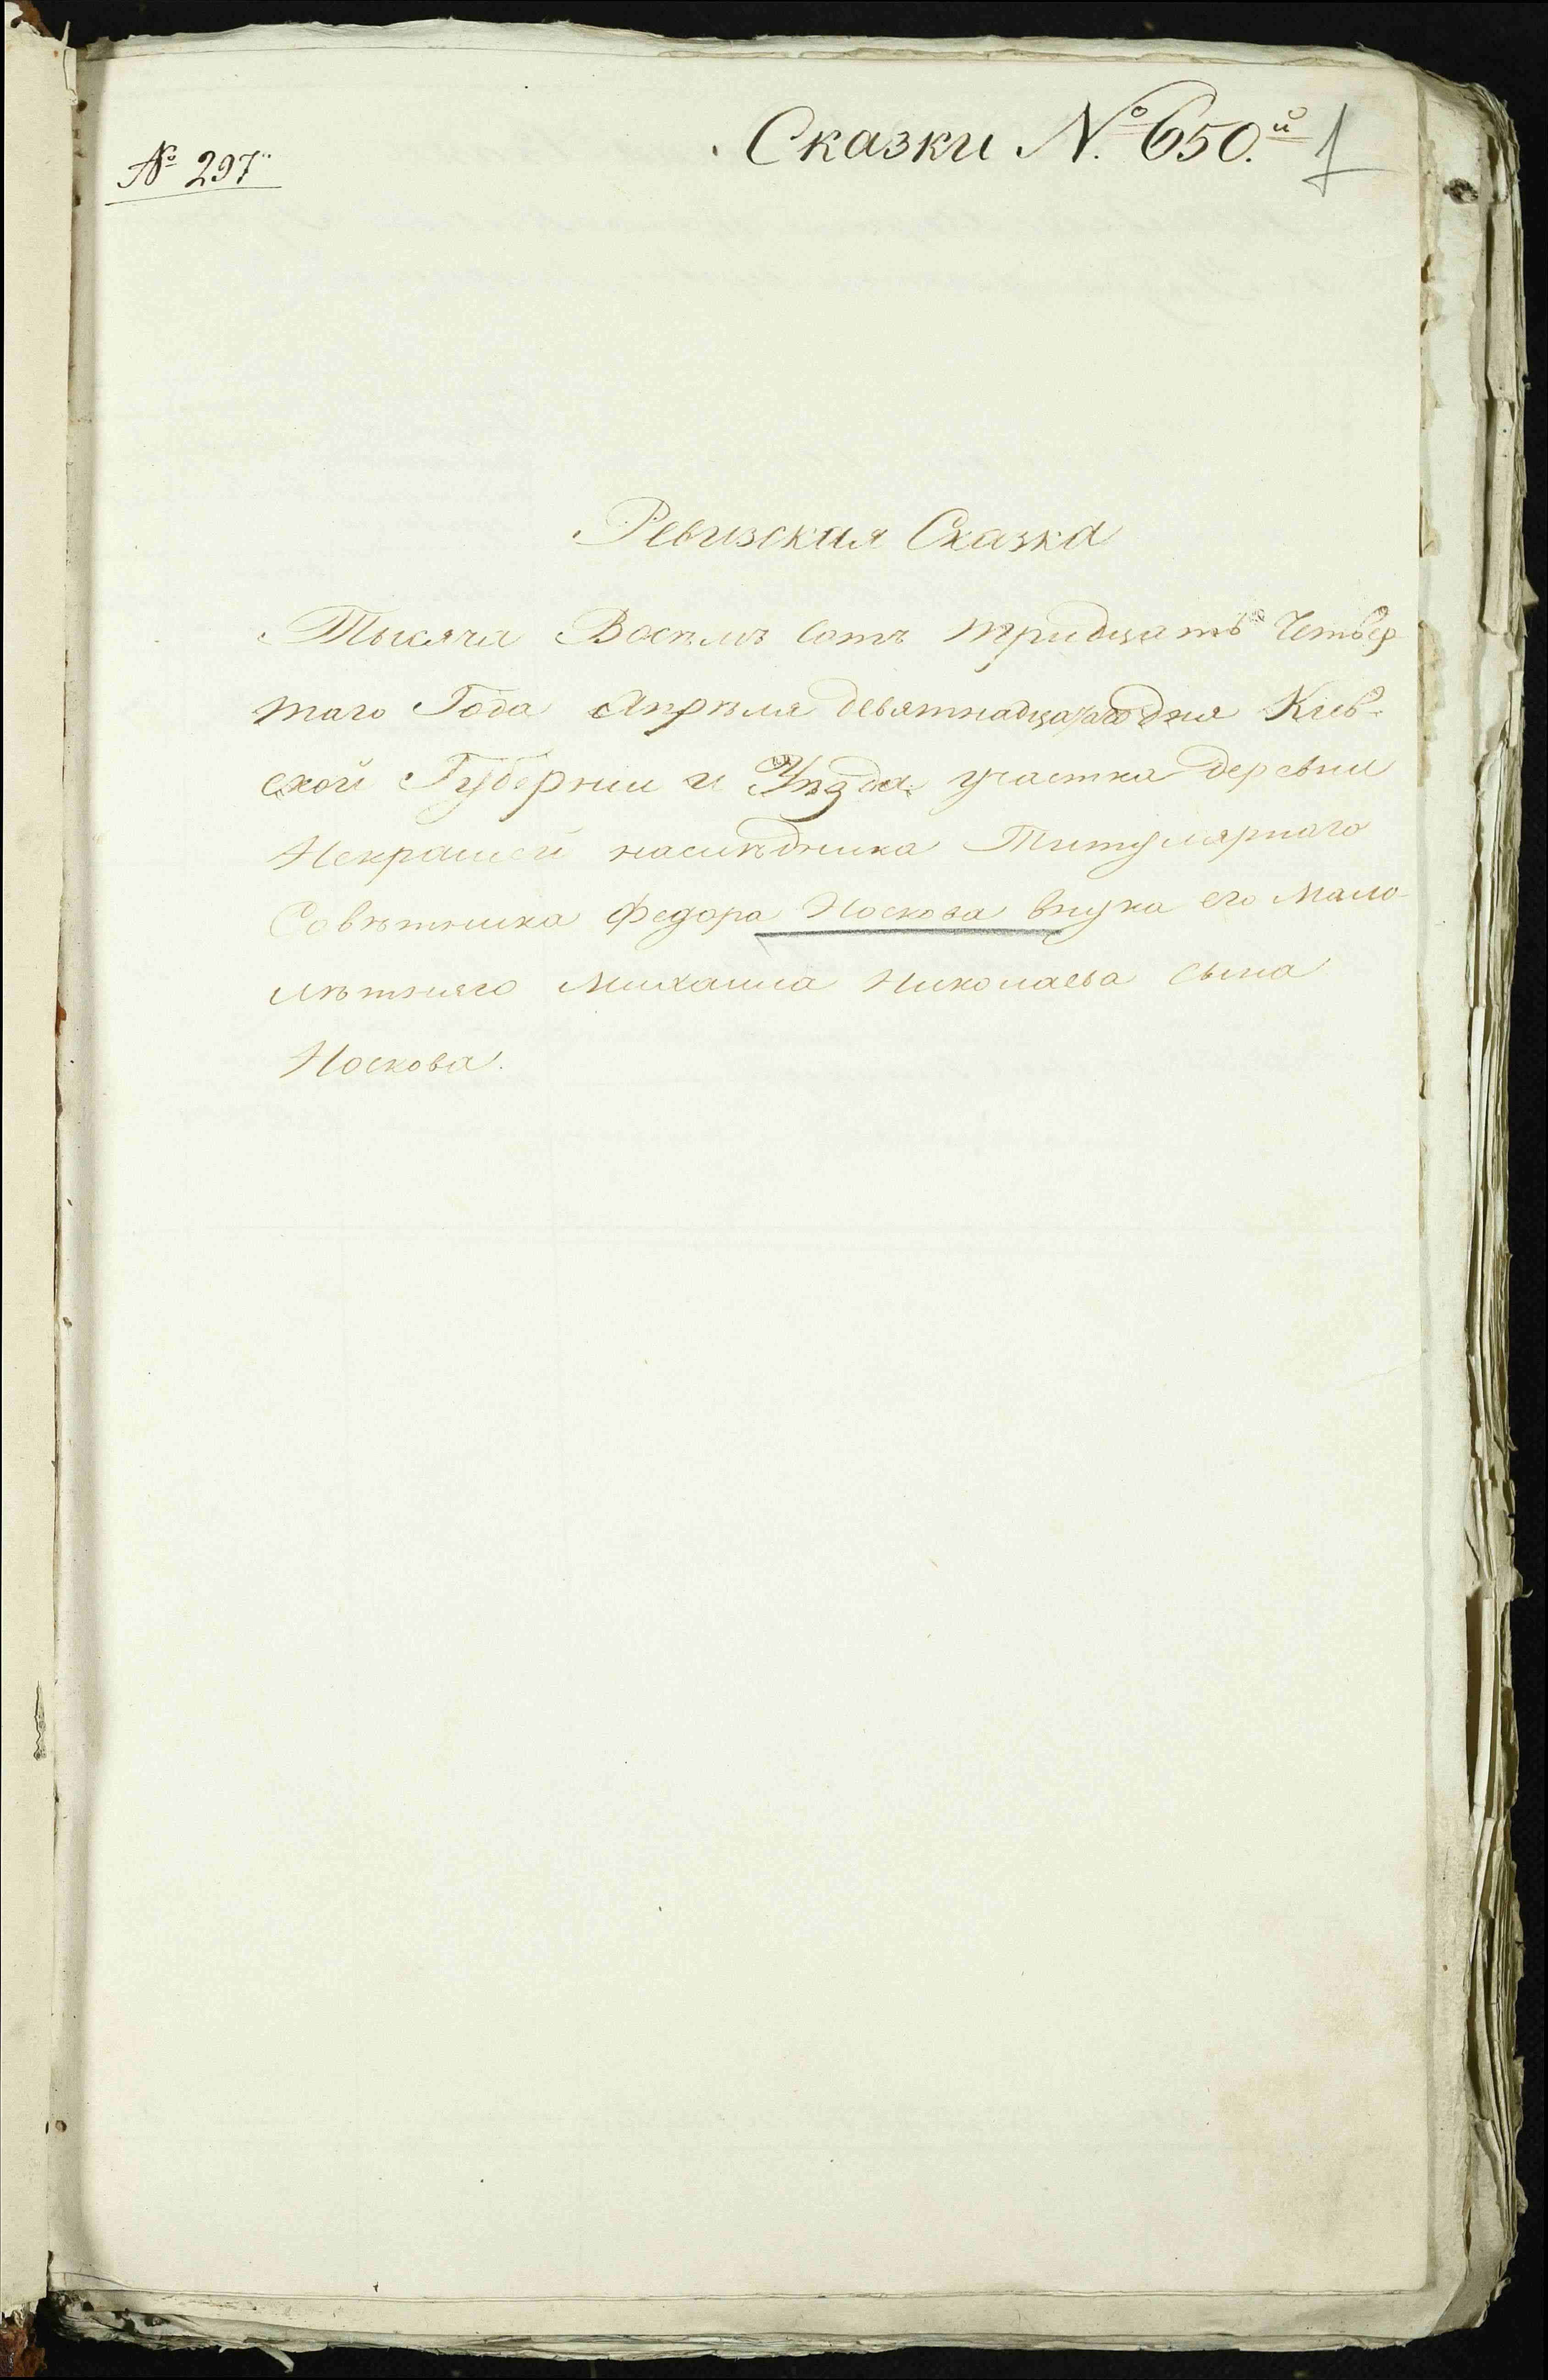 № 297
Сказки №. 650.й 1
Ревизская Сказка
Тысяча Восѣмъ Сотъ тридцать Четвер
таго Года Апрѣля девятнадцатаго дня Кіев-
ской Губерніи и Уѣзда участка деревни
Некрашей наслѣдника Титулярнаго
Совѣтника Федора Носкова внука его Мало-
лѣтняго Михаила Николаева сына
Носкова.